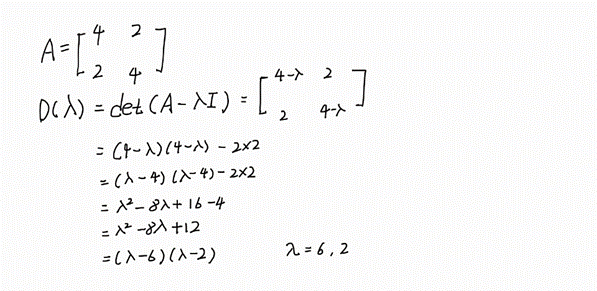 A = [4 2
2 4]
D(λ) = det(A-λI) = [4-λ 2
2 4-λ]
= (4-λ)(4-λ) - 2×2
= (λ-4)(λ-4) - 2×2
= λ²-8λ+16-4
= λ²-8λ+12
= (λ-6)(λ-2) λ=6, 2